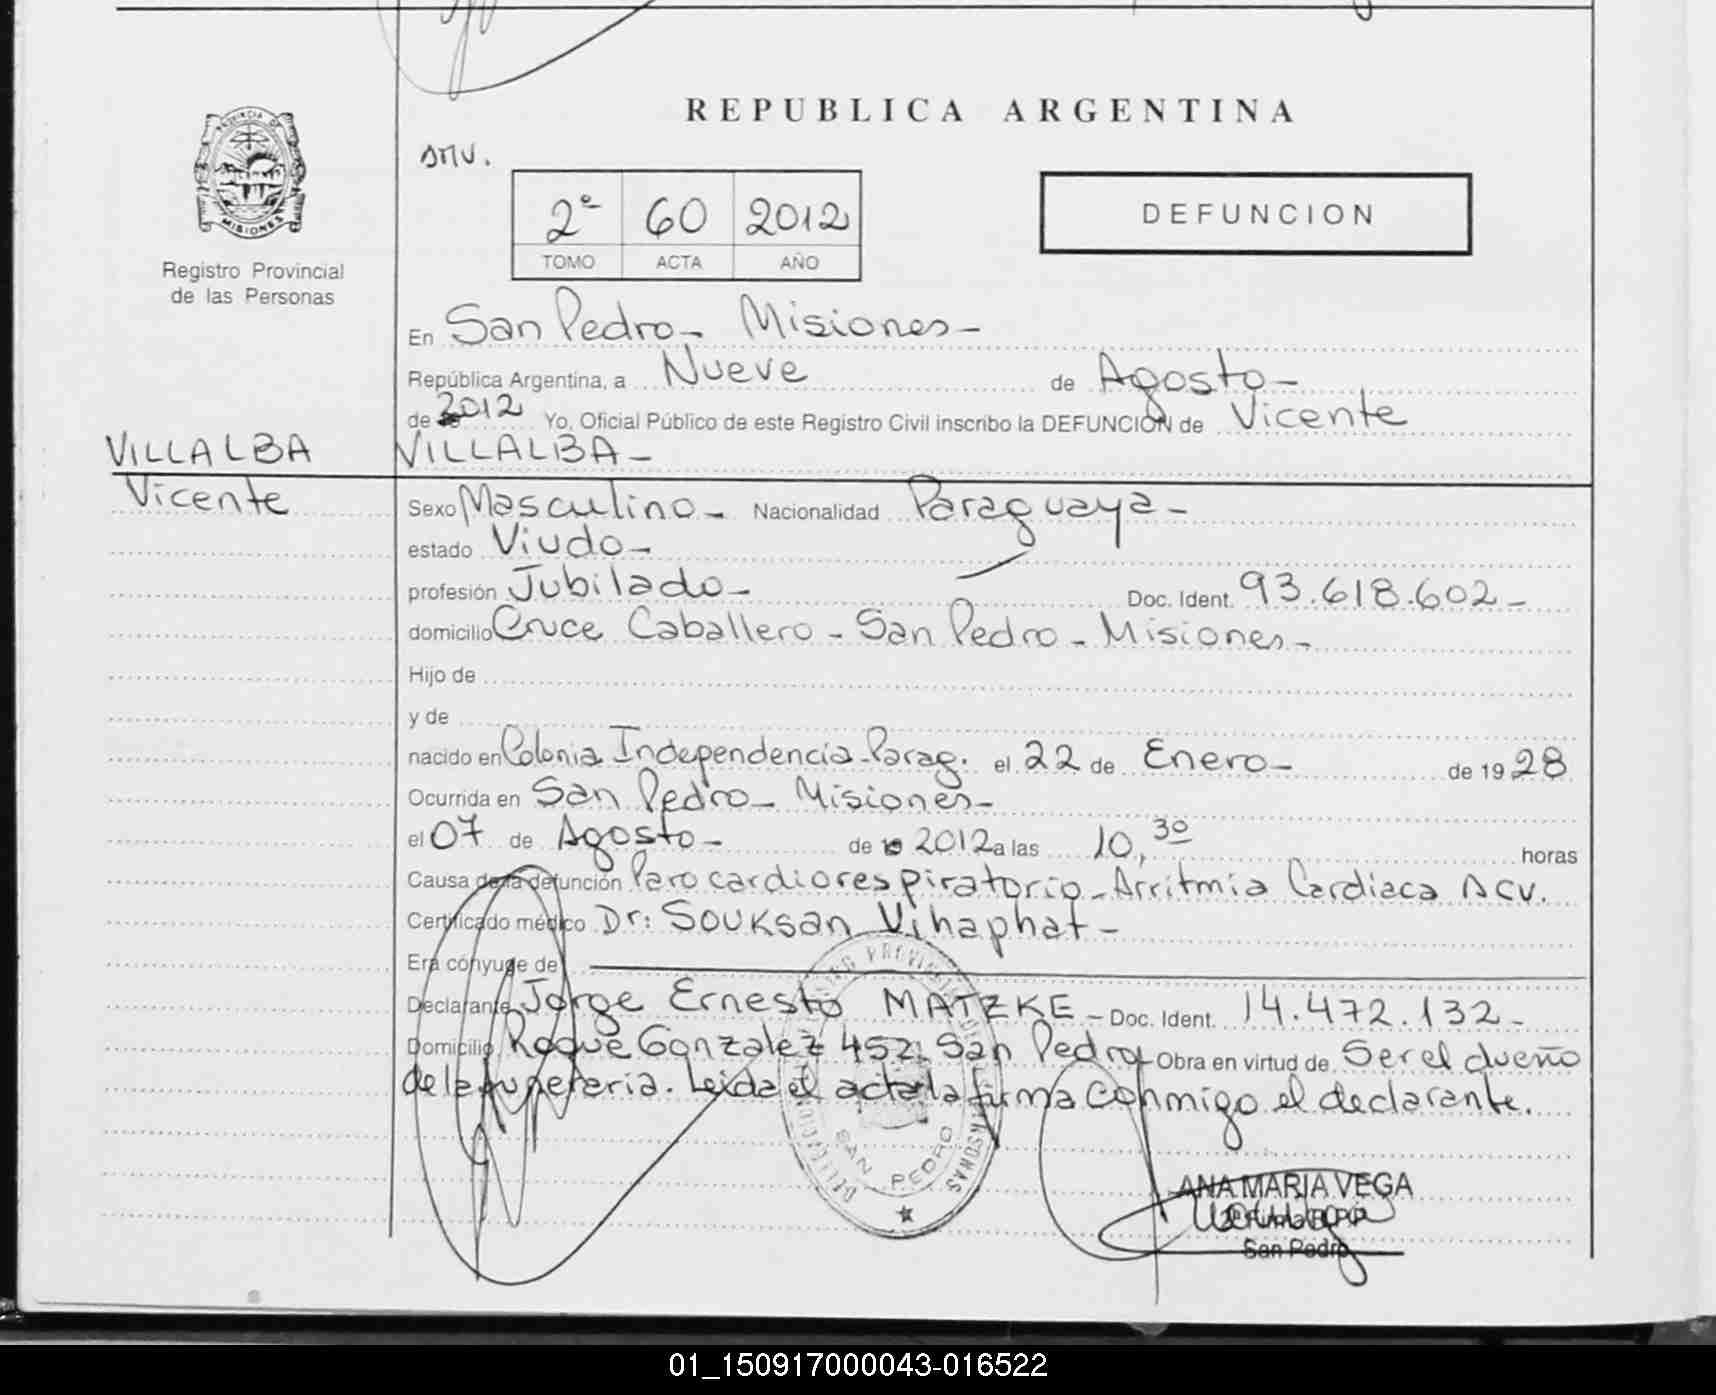 REPUBLICA ARGENTINA
PROVINCIA DE
MISIONES
Registro Provincial
de las Personas
smv.
2º 60 2012
TOMO ACTA AÑO
DEFUNCION
En San Pedro - Misiones -
República Argentina, a Nueve de Agosto -
de 2012 Yo, Oficial Público de este Registro Civil inscribo la DEFUNCION de Vicente
VILLALBA VILLALBA -
Vicente Sexo Masculino - Nacionalidad Paraguaya -
estado Viudo -
profesión Jubilado - Doc. Ident. 93.618.602 -
domicilio Cruce Caballero - San Pedro - Misiones -
Hijo de
y de
nacido en Colonia Independencia - Parag. el 22 de Enero - de 19 28
Ocurrida en San Pedro - Misiones -
el 07 de Agosto - de 2012 a las 10,30 horas
Causa de la defunción Paro cardiorespiratorio - Arritmia Cardiaca ACV.
Certificado médico Dr: Souksan Vihaphat -
Era cónyuge de
Declarante Jorge Ernesto MATZKE - Doc. Ident. 14.472.132 -
Domicilio Roque Gonzalez 452. San Pedro Obra en virtud de Ser el dueño
de la funeraria. Leida el acta la firma conmigo el declarante.
SAN PEDRO
ANA MARIA VEGA
San Pedro
01_150917000043-016522